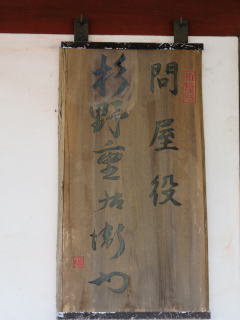 問屋役
杉野重右衛門